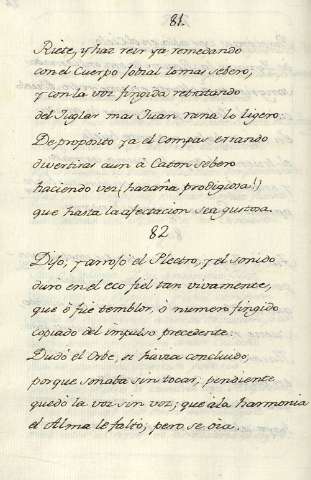 81.
Riete, y haz reir ya remedando
con el Cuerpo jobial lo mas sebero;
y con la voz fingida retratando
del Juglar mas Juan rana lo ligero:
De proposito ya el compas errando
divertiras aun à Caton sebero
haciendo ver (hazaña prodigiosa!)
que hasta la afectacion sea gustosa.
82
Dijo; y arrojó el Plectro, y el sonido
duro en el eco fiel tan vivamente,
que ò fue temblor, ò numero fingido
copiado del impulso precedente.
Dudó el Orbe, si havia concluido,
porque sonaba sin tocar, pendiente
quedó la voz sin voz; que à la harmonia
el Alma le faltó; pero se oia.